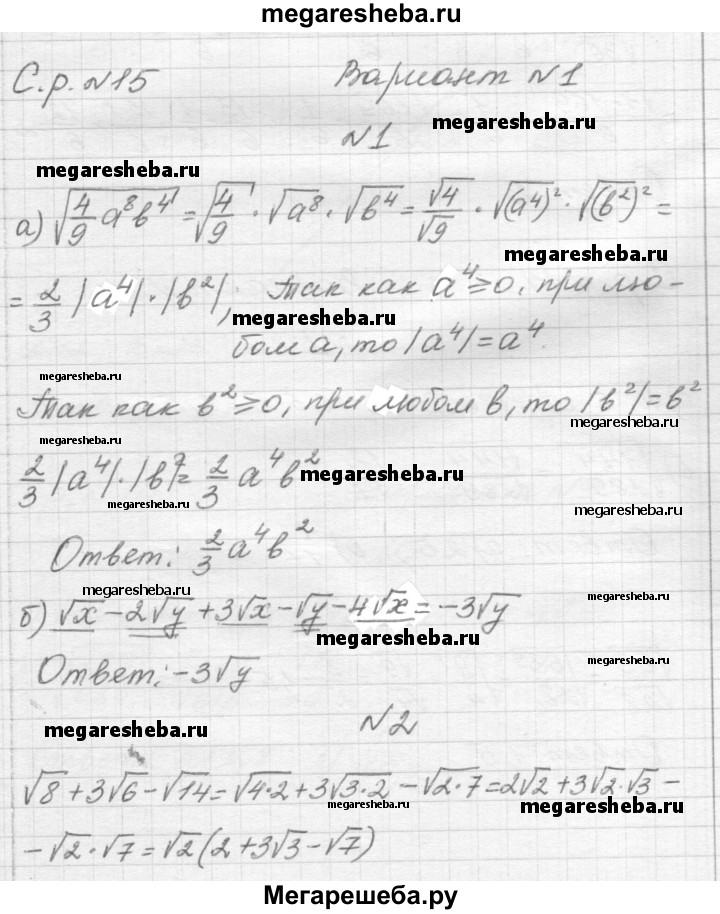 megaresheba.ru
С.р. №15 Вариант №1
megaresheba.ru
№1
megaresheba.ru
а) √(4/9 a⁸b⁴) = √(4/9) · √(a⁸) · √(b⁴) = √4/√9 · √((a⁴)²) · √((b²)²) =
megaresheba.ru
= 2/3 |a⁴| · |b²|, Так как a⁴ ≥ 0, при лю-
megaresheba.ru
бом a, то |a⁴| = a⁴.
megaresheba.ru
Так как b² ≥ 0, при любом b, то |b²| = b²
megaresheba.ru
megaresheba.ru
2/3 |a⁴| · |b²| = 2/3 a⁴b²
megaresheba.ru
megaresheba.ru
megaresheba.ru
Ответ: 2/3 a⁴b²
megaresheba.ru
megaresheba.ru
б) √x − 2√y + 3√x − √y − 4√x = −3√y
megaresheba.ru
megaresheba.ru
Ответ: −3√y
megaresheba.ru
№2
megaresheba.ru
√8 + 3√6 − √14 = √(4·2) + 3√(3·2) − √(2·7) = 2√2 + 3√2·√3 −
megaresheba.ru
megaresheba.ru
− √2 · √7 = √2(2 + 3√3 − √7)
Мегарешеба.ру